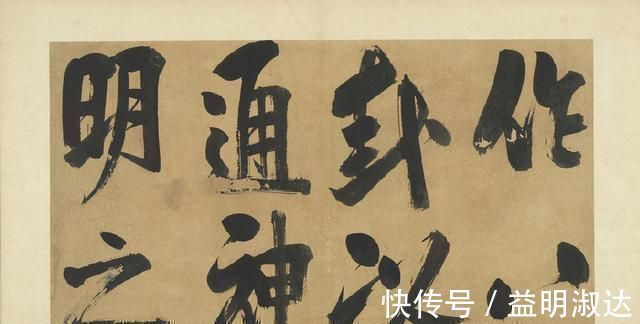 作八
卦以
通神
明之
快传号 / 益明淑达